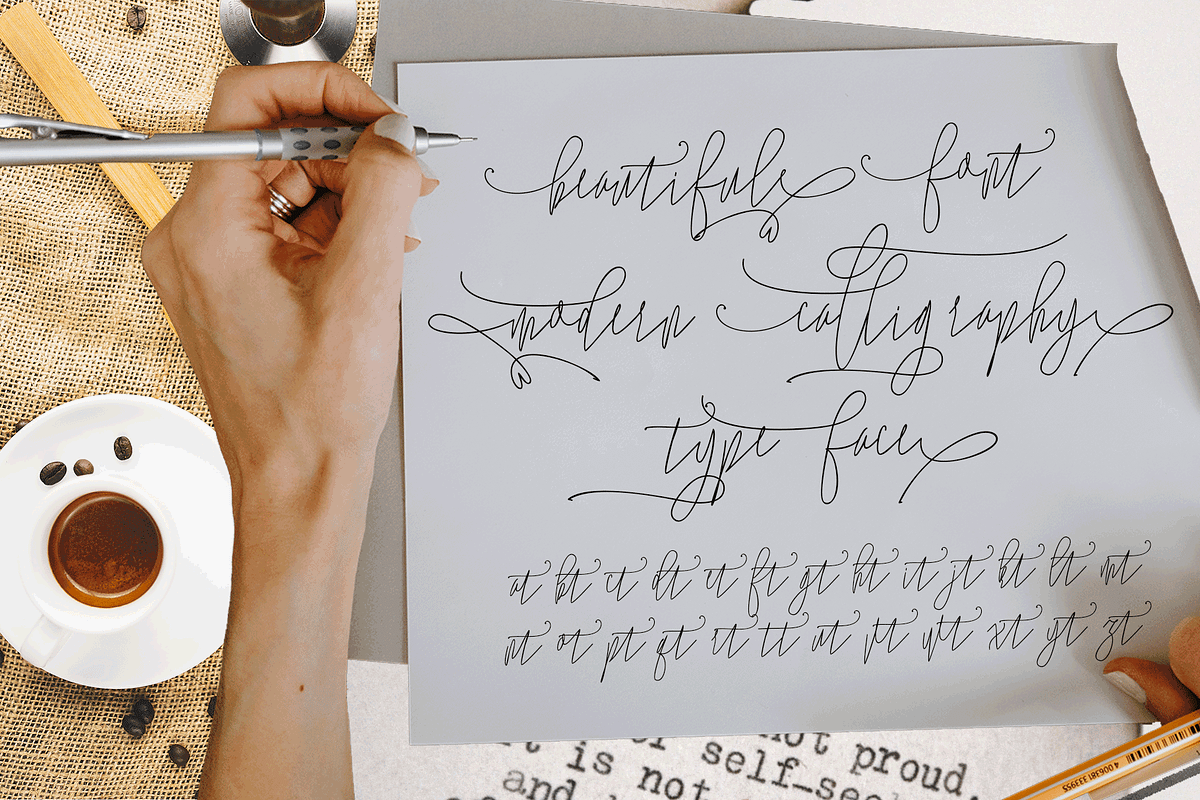 beautiful font
modern calligraphy
type face
at bt ct dt et ft gt ht it jt kt lt mt
nt ot pt qt rt tt ut vt wt xt yt zt
not proud.
is not
and
4 006381 333955